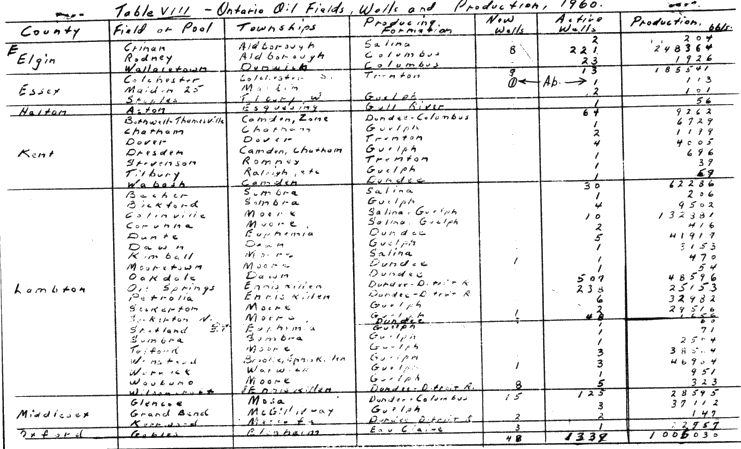 Table VIII - Ontario Oil Fields, Wells and Production, 1960.
County Field or Pool Townships Producing Formation New Wells Active Wells Production, bbls.
Elgin Crinan Aldborough Salina 2 204
Rodney Aldborough Columbus 8 221 248364
Wallacetown Dunwich Columbus 23 1926
Essex Colchester Colchester S. Trenton 9 13 185541
Maidn 25 Ab. 1 113
Staples Tilbury W. Guelph 2 101
Halton Acton Esquesing Gull River 1 56
Kent Bothwell-Thamesville Camden, Zone Dundee-Columbus 64 9262
Chatham Chatham Guelph 1 6729
Dover Dover Trenton 2 1179
Dresden Camden, Chatham Guelph 4 4005
Stevenson Romney Trenton 1 696
Tilbury Raleigh, etc Guelph 1 39
Wabash Camden Dundee 1
Lambton Becher Sombra Salina 30 62286
Bickford Sombra Guelph 1 206
Colinville Moore Salina, Guelph 4 9502
Corunna Moore Salina, Guelph 10 132381
Euphemia Dundee 2 416
Dawn Dawn Guelph 5 41917
Kimball Moore Salina 1 3153
Mooretown Moore Dundee 1 1 470
Oakdale Dawn Dundee 1 54
Oil Springs Enniskillen Dundee-Detroit R 507 48596
Petrolia Enniskillen Dundee-Detroit R 238 25153
Seckerton Moore Guelph 6 32982
Seckerton N. Moore Guelph 1 2 29516
Euphemia Dundee
Sombra Sombra Guelph 1 71
Moore Guelph 1
Brooke, Enniskillen Guelph 3
Warwick Warwick Guelph 1 3 46904
Waubuno Moore Guelph 1 951
Enniskillen Dundee-Detroit R. 8 5 323
Middlesex Glencoe Mosa Dundee-Columbus 15 125 28595
Grand Bend McGillivray Guelph 3 37112
Kerwood Dundee-Detroit 2 2 147
Oxford Gobles Blenheim Eau Claire 3 1
48 1339 1006030